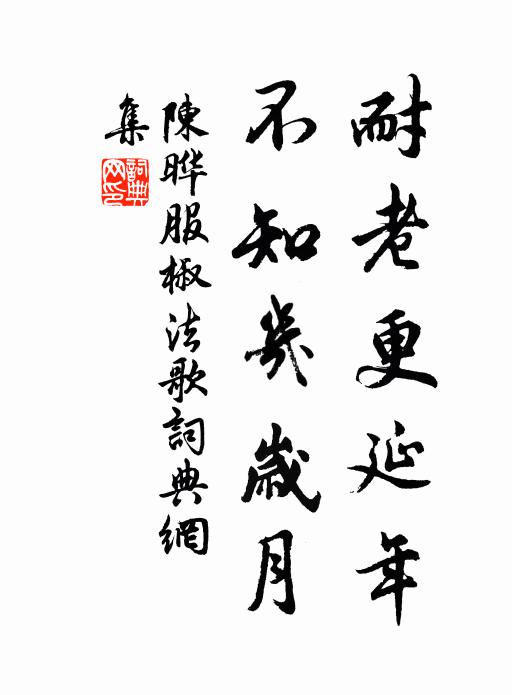 耐老更延年
不知幾歲月
陳曄服椒法歌詞典網
集
詞典
网印